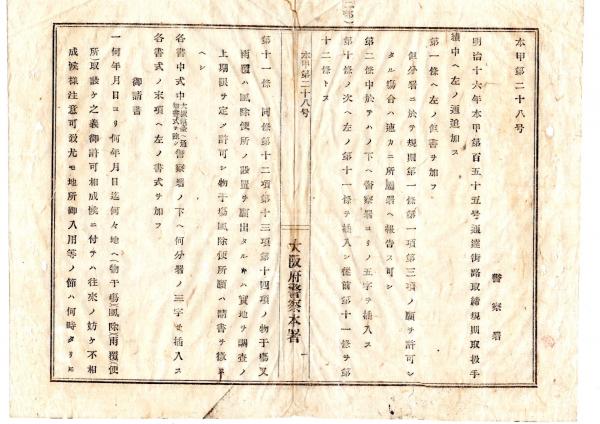 本甲第二十八号
警察署
明治十六年本甲第百五十五号通達街路取締規則取扱手
續中ヘ左ノ通追加ス
第一條ヘ左ノ但書ヲ加フ
但分署ニ於テ規則第一條第一項第三項ノ願ヲ許可シ
タル場合ハ速カニ所屬署ヘ報告ス可シ
第二條中於テハノ下ヘ警察署ヨリノ五字ヲ插入ス
第十條ノ次ヘ左ノ第十一條ヲ插入シ從前第十一條ヲ第
十二條トス
本甲第二十八号
大阪府警察本署
一
第十一條 同條第十二項第十三項第十四項ノ物干場又
雨覆ハ風除便所ノ設置ヲ願出タルキハ實地ヲ調査ノ
上期限ヲ定メ許可シ物干場風除便所願ハ請書ヲ徴ス
ヘシ
各書中式中警察署ノ下ヘ何分署ノ三字ヲ插入ス
各書式ノ末項ヘ左ノ書式ヲ加フ
御請書
一何年月日ヨリ何年月日迄何々地ヘ(物干場)(風除)(雨覆)(便
所)取設ケ之義御許可相成候ニ付テハ往來ノ妨ケ不相
成候樣注意可致尤モ地所御入用等ノ節ハ何時タリ𪜈